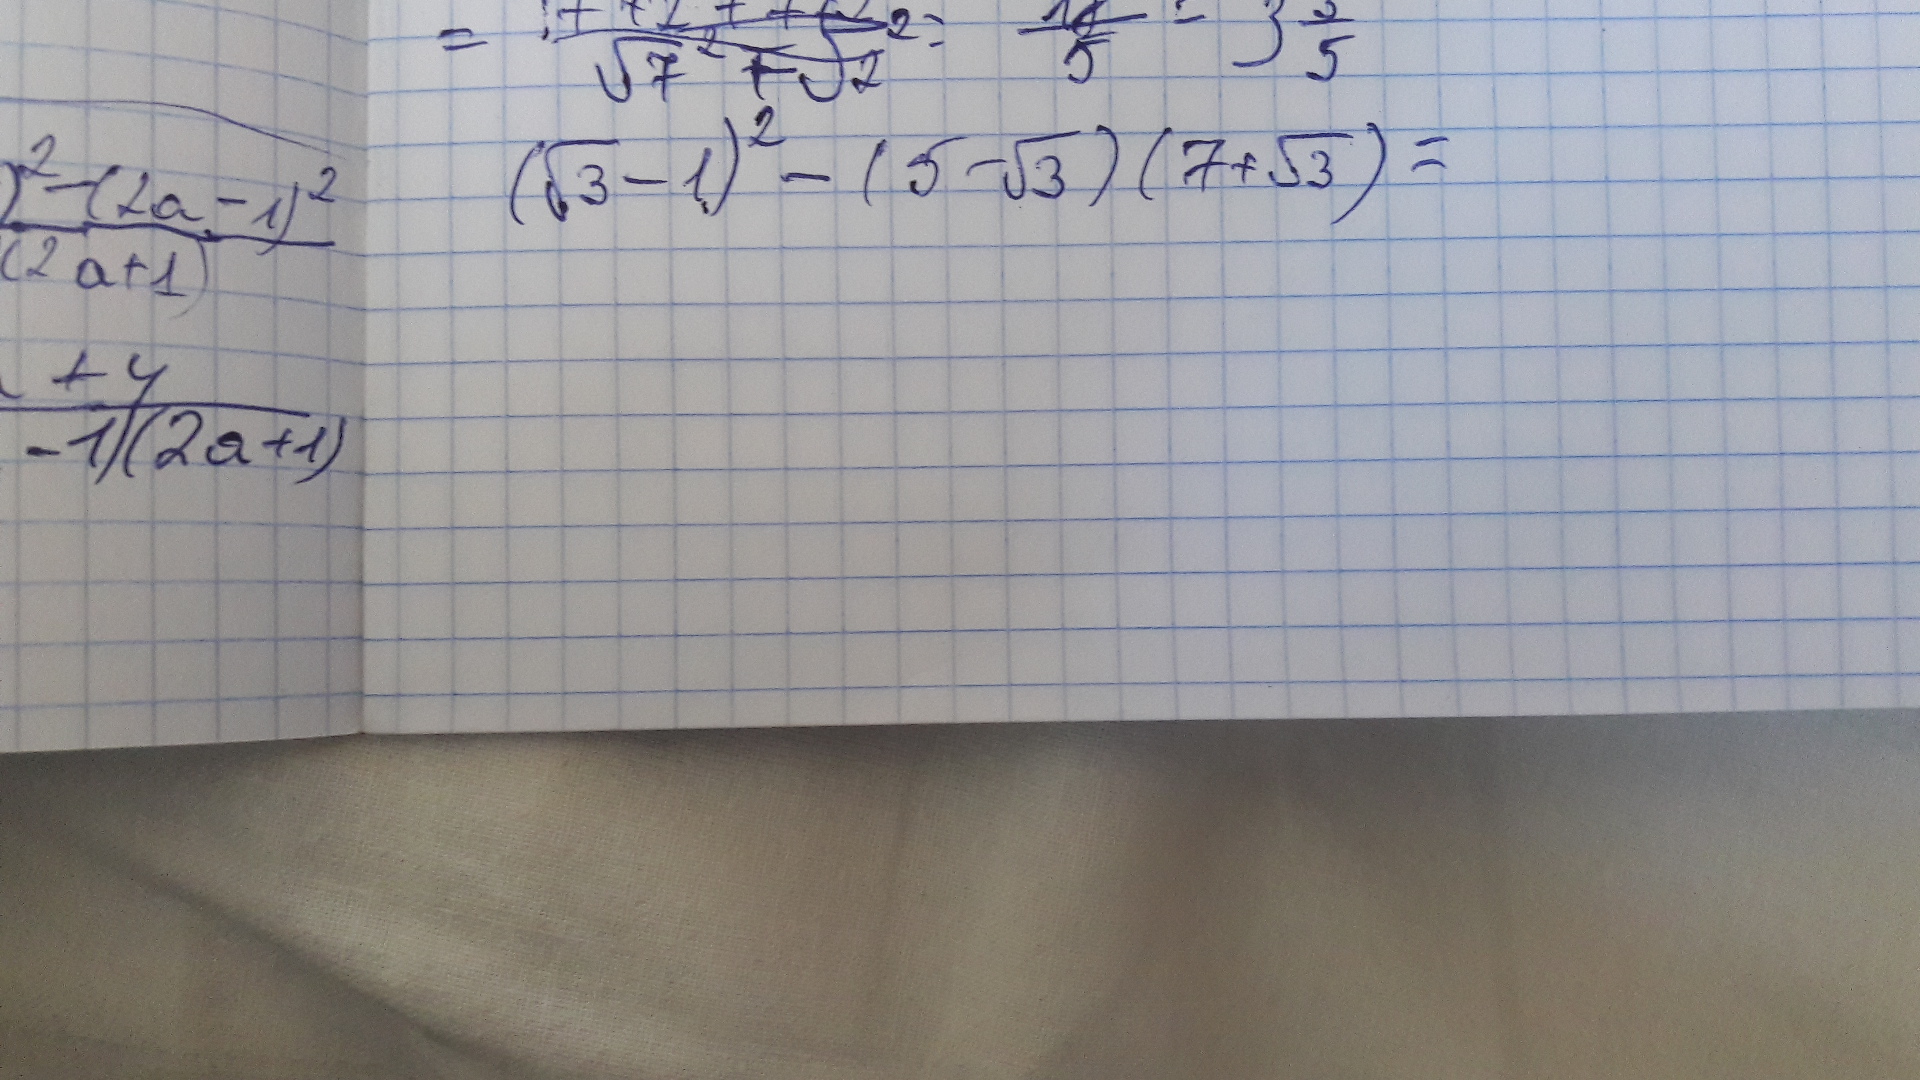 )² - (2a - 1)²
(2a+1)
+ y
- 1)(2a+1)
=
√7² + √2² =
5
= 3
5
(√3 - 1)² - (5 - √3)(7 + √3) =